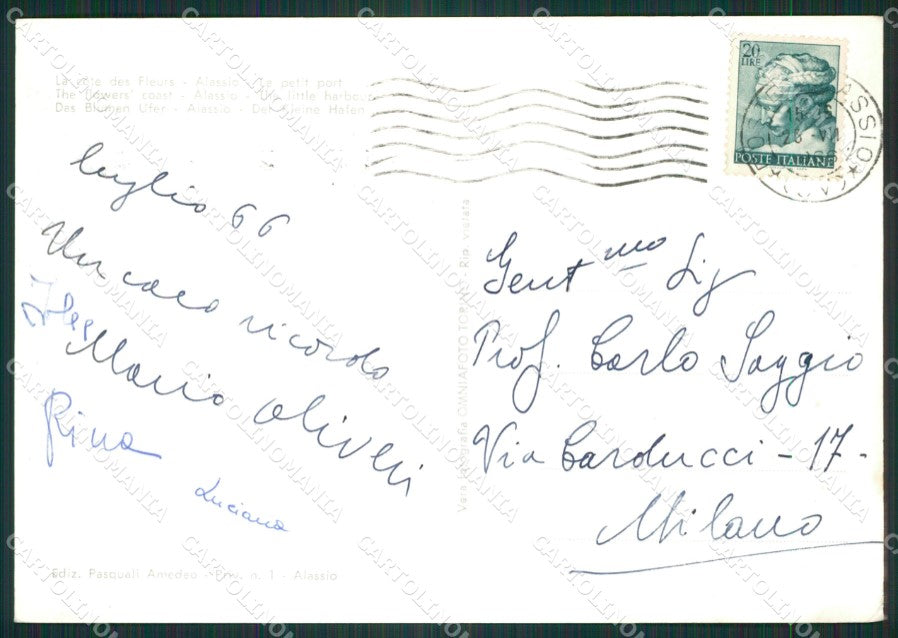 La côte des Fleurs - Alassio - Le petit port
The flowers' coast - Alassio - The little harbour
Das Blumen Ufer - Alassio - Der Kleine Hafen
20
LIRE
POSTE ITALIANE
ALASSIO
luglio 66
Un caro ricordo
Mario Oliveri
Rina
Luciana
Gent.mo Sig
Prof. Carlo Saggio
Via Carducci - 17 -
Milano
Vera Fotografia OMNIAFOTO TORINO - Rip. vietata
Ediz. Pasquali Amedeo - Priv. n. 1 - Alassio
CARTOLINOMANIA